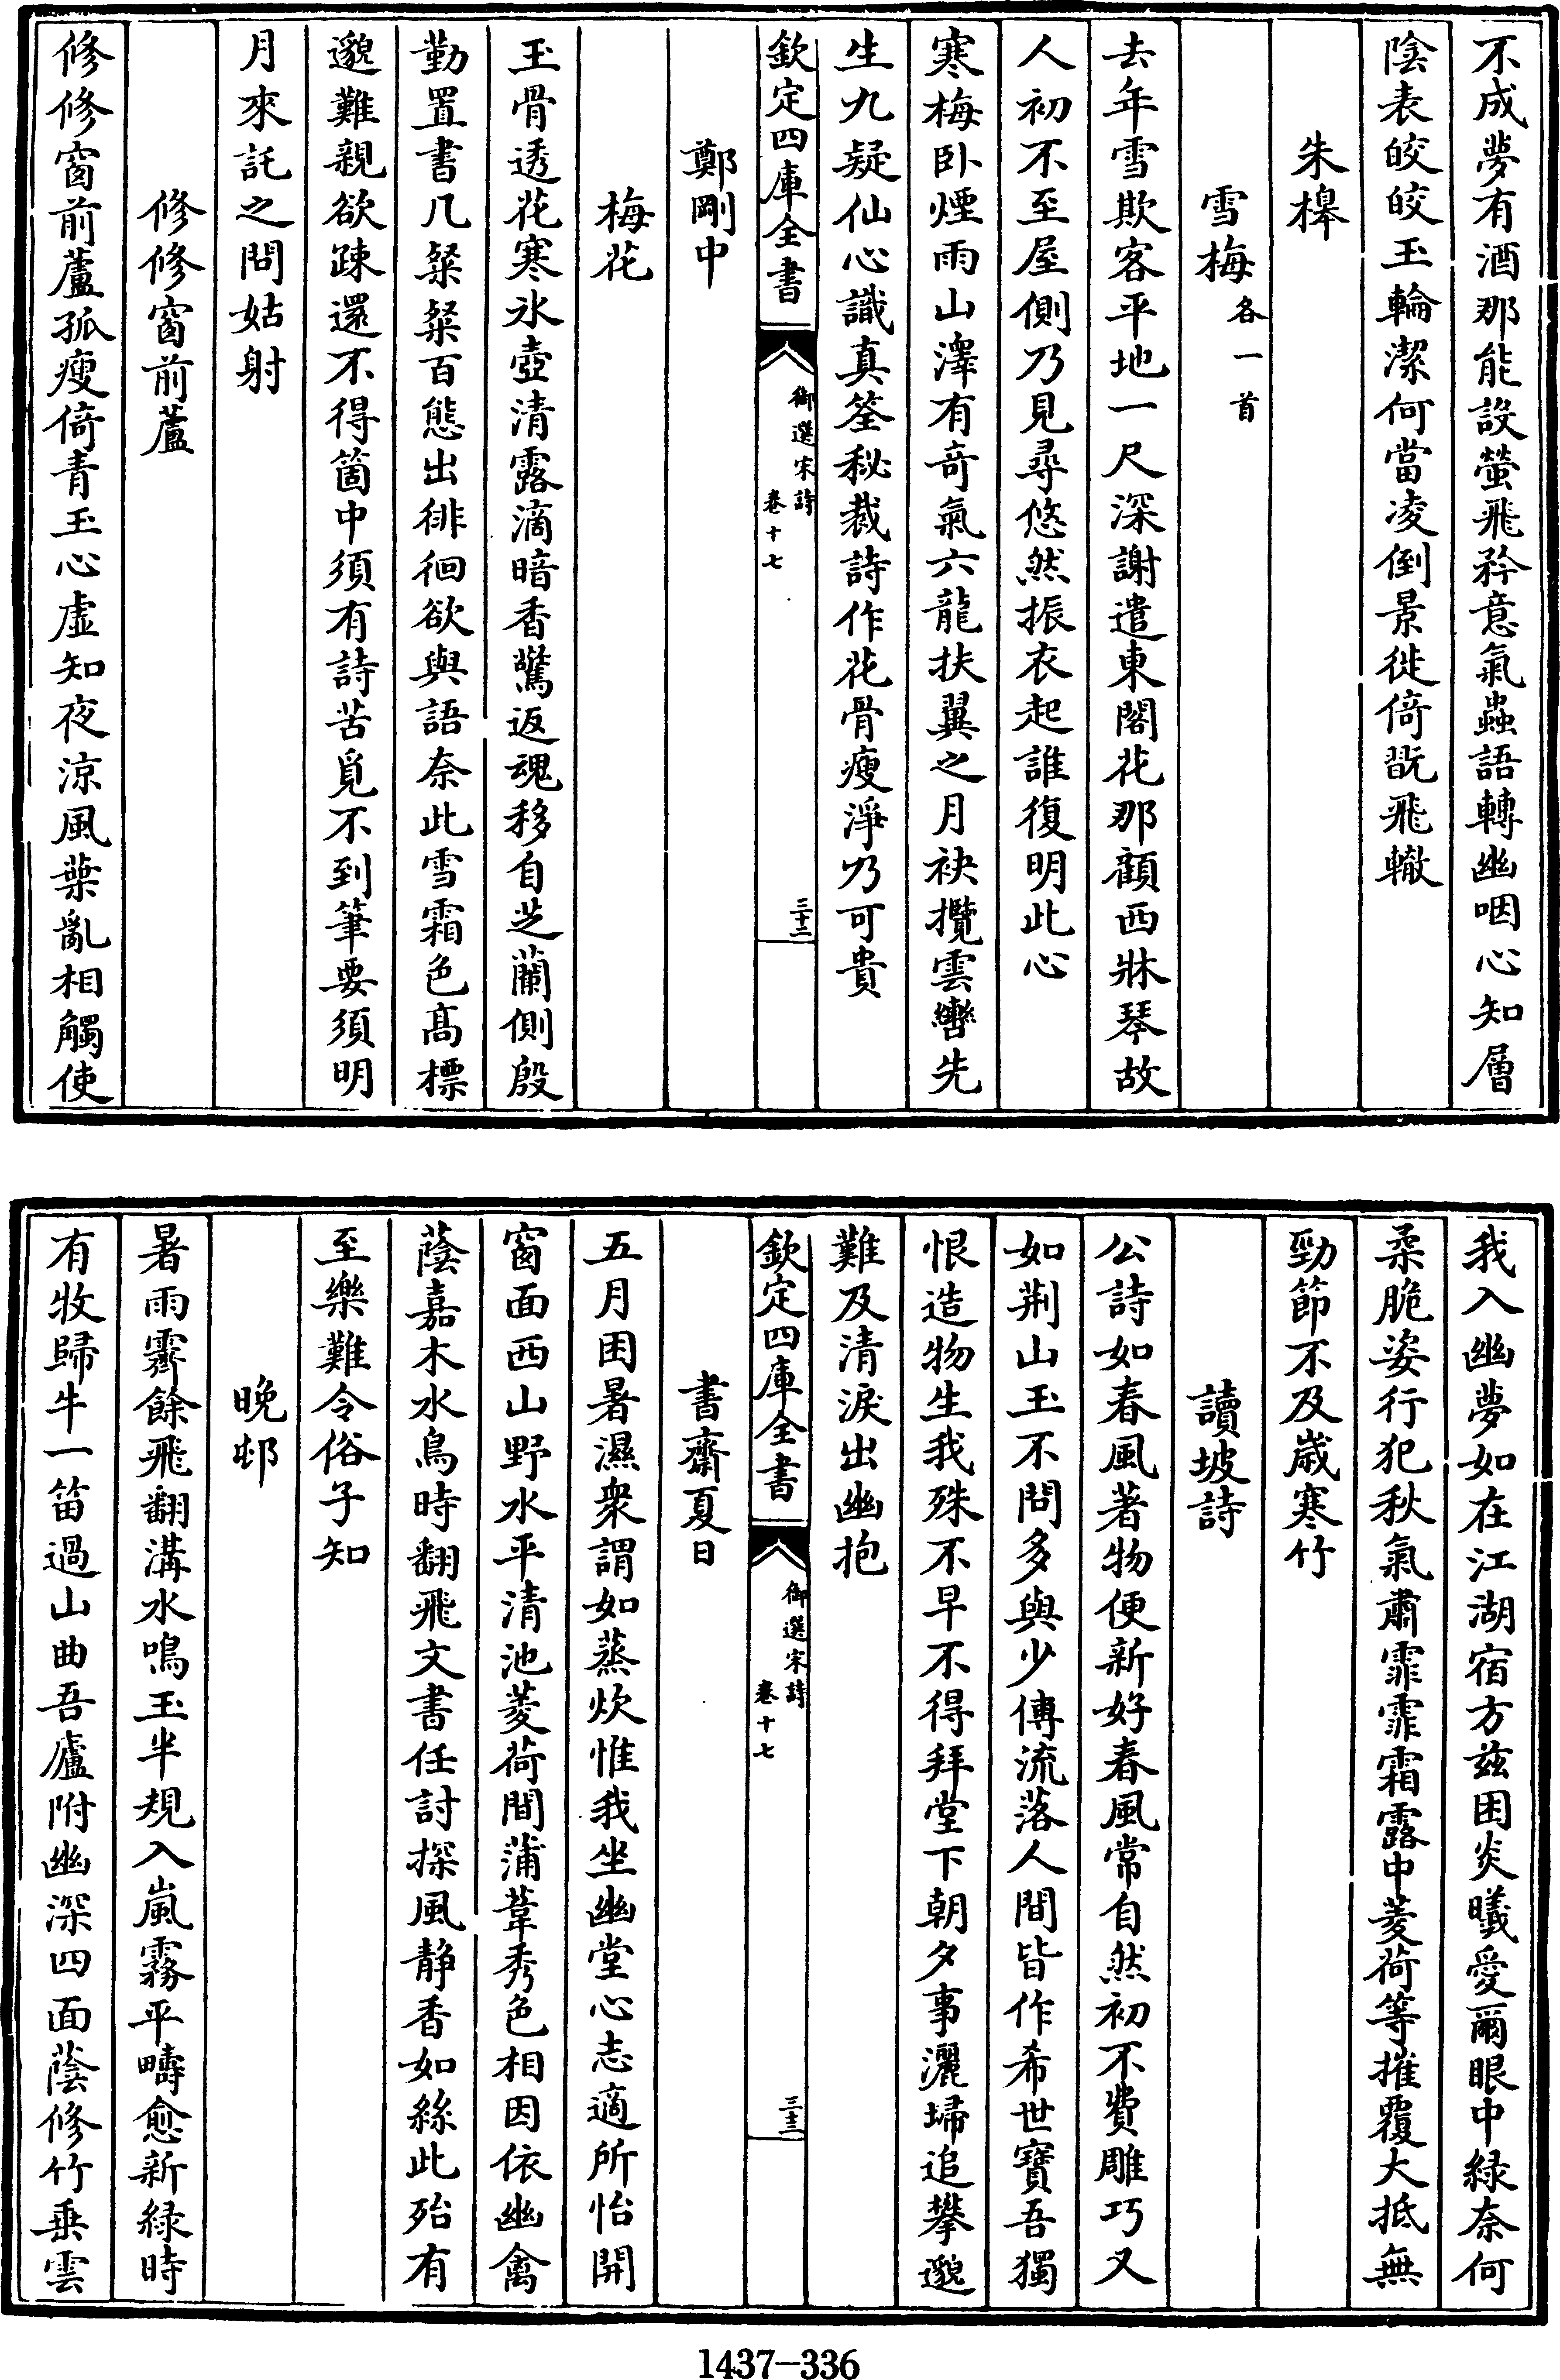 不成夢有酒那能設螢飛矜意氣蟲語轉幽咽心知層
陰表皎皎玉輪潔何當凌倒景徙倚翫飛轍
朱槔
雪梅各一首
去年雪欺客平地一尺深謝遣東閣花那顧西牀琴故
人初不至屋側乃見尋悠然振衣起誰復明此心
寒梅卧煙雨山澤有奇氣六龍扶翼之月袂攬雲轡先
生九疑仙心識真筌秘裁詩作花骨瘦淨乃可貴
欽定四庫全書
御選宋詩
卷十七
三十二
鄭剛中
梅花
玉骨透花寒氷壺清露滴暗香驚返魂移自芝蘭側殷
勤置書几粲粲百態出徘徊欲與語奈此雪霜色髙標
邈難親欲踈還不得箇中須有詩苦覓不到筆要須明
月來託之問姑射
修修窗前蘆
修修窗前蘆孤瘦倚青玉心虛知夜涼風葉亂相觸使
我入幽夢如在江湖宿方兹困炎曦愛爾眼中緑奈何
柔脆姿行犯秋氣肅霏霏霜露中菱荷等摧覆大抵無
勁節不及嵗寒竹
讀坡詩
公詩如春風著物便新好春風常自然初不費雕巧又
如荆山玉不問多與少傅流落人間皆作希世寶吾獨
恨造物生我殊不早不得拜堂下朝夕事灑埽追攀邈
難及清淚出幽抱
欽定四庫全書
御選宋詩
卷十七
三十三
書齋夏日
五月困暑濕衆謂如蒸炊惟我坐幽堂心志適所怡開
窗面西山野水平清池菱荷間蒲葦秀色相因依幽禽
蔭嘉木水鳥時翻飛文書任討探風静香如絲此殆有
至樂難令俗子知
晚邨
暑雨霽餘飛翻溝水鳴玉半規入嵐霧平疇愈新緑時
有牧歸牛一笛過山曲吾廬附幽深四面蔭修竹垂雲
1437-336